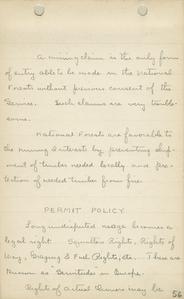 A mining claim is the only form
of entry able to be made in the National
Forests without previous consent of the
Service. Such claims are very trouble-
some.
National Forests are favorable to
the mining interest by preventing ship-
ment of timber needed locally and pro-
tection of needed timber from fire.
PERMIT POLICY.
Long undisputed usage becomes a
legal right. Squatters Rights, Rights of
Way, Grazing & Fuel Rights, etc. These are
known as Servitudes in Europe.
Rights of Actual Owners may be
56